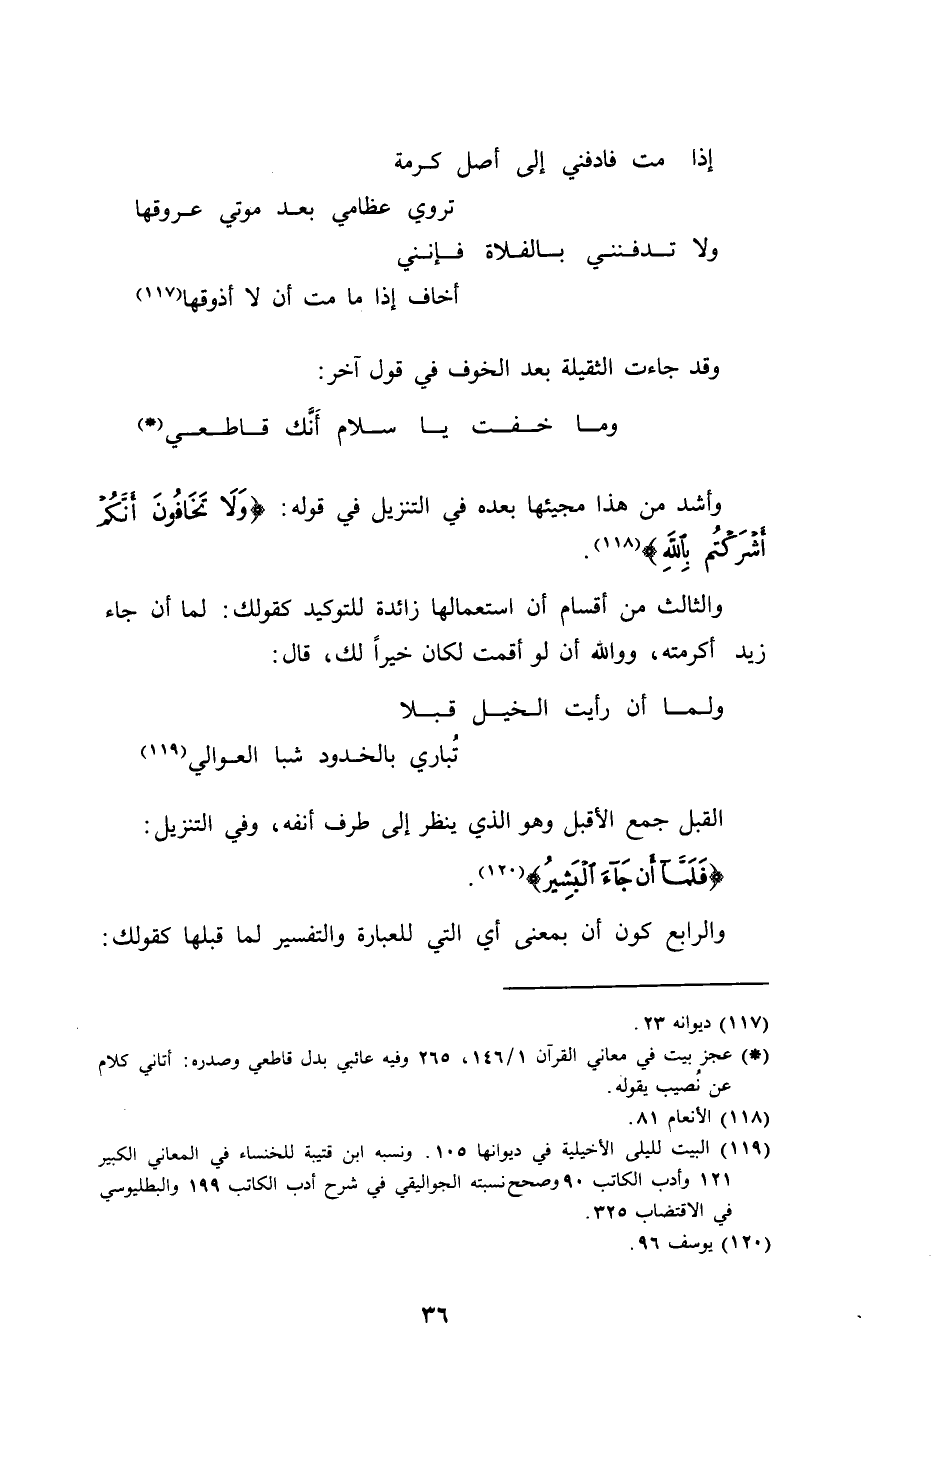 إذا مت فادفني إلى أصل كـرمة
تروي عظامي بعـد موتي عـروقها
ولا تـدفـنـني بـالفـلاة فـإنـني
أخاف إذا ما مت أن لا أذوقها(١١٧)
وقد جاءت الثقيلة بعد الخوف في قول آخر:
ومـا خـفـت يـا سـلام أَنَّك قـاطـعـي(*)
وأشد من هذا مجيئها بعده في التنزيل في قوله: ﴿وَلَا تَخَافُونَ أَنَّكُمْ
أَشْرَكْتُم بِٱللَّهِ﴾(١١٨).
والثالث من أقسام أن استعمالها زائدة للتوكيد كقولك: لما أن جاء
زيد أكرمته، ووالله أن لو أقمت لكان خيراً لك، قال:
ولـمـا أن رأيت الـخيـل قـبـلا
تُباري بالخـدود شبا العـوالي(١١٩)
القبل جمع الأقبل وهو الذي ينظر إلى طرف أنفه، وفي التنزيل:
﴿فَلَمَّآ أَن جَآءَ ٱلْبَشِيرُ﴾(١٢٠).
والرابع كون أن بمعنى أي التي للعبارة والتفسير لما قبلها كقولك:
(١١٧) ديوانه ٢٣.
(*) عجز بيت في معاني القرآن ١٤٦/١، ٢٦٥ وفيه عائبي بدل قاطعي وصدره: أتاني كلام
عن نُصيب يقوله.
(١١٨) الأنعام ٨١.
(١١٩) البيت لليلى الأخيلية في ديوانها ١٠٥. ونسبه ابن قتيبة للخنساء في المعاني الكبير
١٢١ وأدب الكاتب ٩٠ وصحح نسبته الجواليقي في شرح أدب الكاتب ١٩٩ والبطليوسي
في الاقتضاب ٣٢٥.
(١٢٠) يوسف ٩٦.
٣٦